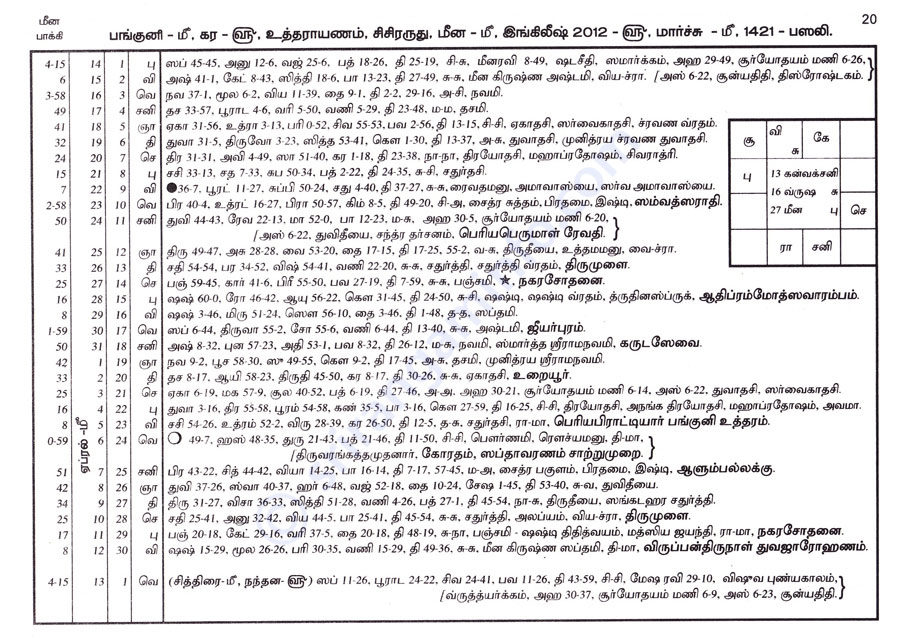 20
மீன
பாக்கி
பங்குனி - மீ, கர - ௵, உத்தராயணம், சிசிரருது, மீன - மீ, இங்கிலீஷ் 2012 - ௵, மார்ச்சு - மீ, 1421 - பஸலி.
4-15 14 1 பு ஸப் 45-45, அனு 12-6, வஜ் 25-6, பத் 18-26, தி 25-19, சி-சு, மீனரவி 8-49, ஷடசீதி, ஸ்மார்க்கம், அஹ 29-49, சூர்யோதயம் மணி 6-26,
6 15 2 வி அஷ் 41-1, கேட் 8-43, ஸித்தி 18-6, பா 13-23, தி 27-49, சு-சு, மீன கிருஷ்ண அஷ்டமி, விய-ச்ரா. [அஸ் 6-22, சூன்யதிதி, திஸ்ரோஷ்டகம்.
3-58 16 3 வெ நவ 37-1, மூல 6-2, விய 11-39, தை 9-1, தி 2-2, 29-16, அ-சி, நவமி.
49 17 4 சனி தச 33-57, பூராட 4-6, வரி 5-50, வணி 5-29, தி 23-48, ம-ம, தசமி.
41 18 5 ஞா ஏகா 31-56, உத்ரா 3-13, பரி 0-52, சிவ 55-53, பவ 2-56, தி 13-15, சி-சி, ஏகாதசி, ஸர்வைகாதசி, ச்ரவண வ்ரதம்.
32 19 6 தி துவா 31-5, திருவோ 3-23, ஸித்த 53-41, கௌ 1-30, தி 13-37, அ-சு, துவாதசி, முனித்ரய ச்ரவண துவாதசி.
24 20 7 செ திர 31-31, அவி 4-49, ஸா 51-40, கர 1-18, தி 23-38, நா-நா, திரயோதசி, மஹாப்ரதோஷம், சிவராத்ரி.
15 21 8 பு சசி 33-13, சத 7-33, சுப 50-34, பத் 2-22, தி 24-35, சு-சி, சதுர்தசி.
7 22 9 வி ●36-7, பூரட் 11-27, சுப்பி 50-24, சது 4-40, தி 37-27, சு-சு, ரைவதமனு, அமாவாஸ்யை, ஸர்வ அமாவாஸ்யை.
2-58 23 10 வெ பிர 40-4, உத்ரட் 16-27, பிரா 50-57, கிம் 8-5, தி 49-20, சி-அ, சைத்ர சுத்தம், பிரதமை, இஷ்டி, ஸம்வத்ஸராதி.
50 24 11 சனி துவி 44-43, ரேவ 22-13, மா 52-0, பா 12-23, ம-சு, அஹ 30-5, சூர்யோதயம் மணி 6-20,
[அஸ் 6-22, துவிதீயை, சந்த்ர தர்சனம், பெரியபெருமாள் ரேவதி.
41 25 12 ஞா திரு 49-47, அசு 28-28, வை 53-20, தை 17-15, தி 17-25, 55-2, வ-சு, திருதீயை, உத்தமமனு, வை-ச்ரா.
33 26 13 தி சதி 54-54, பர 34-52, விஷ் 54-41, வணி 22-20, சு-சு, சதுர்த்தி, சதுர்த்தி வ்ரதம், திருமுளை.
25 27 14 செ பஞ் 59-45, கார் 41-6, பிரீ 55-50, பவ 27-19, தி 7-59, சு-சு, பஞ்சமி, ★, நகரசோதனை.
16 28 15 பு ஷஷ் 60-0, ரோ 46-42, ஆயு 56-22, கௌ 31-45, தி 24-50, சு-சி, ஷஷ்டி, ஷஷ்டி வ்ரதம், த்ருதினஸ்ப்ருக், ஆதிப்ரம்மோத்ஸவாரம்பம்.
8 29 16 வி ஷஷ் 3-46, மிரு 51-24, ஸௌ 56-10, தை 3-46, தி 1-48, த-த, ஸப்தமி.
1-59 30 17 வெ ஸப் 6-44, திருவா 55-2, சோ 55-6, வணி 6-44, தி 13-40, சு-சு, அஷ்டமி, ஜீயர்புரம்.
50 31 18 சனி அஷ் 8-32, புன 57-23, அதி 53-1, பவ 8-32, தி 26-12, ம-சு, நவமி, ஸ்மார்த்த ஸ்ரீராமநவமி, கருடஸேவை.
42 1 19 ஞா நவ 9-2, பூச 58-30, ஸு 49-55, கௌ 9-2, தி 17-45, அ-சு, தசமி, முனித்ரய ஸ்ரீராமநவமி.
33 2 20 தி தச 8-17, ஆயி 58-23, திருதி 45-50, கர 8-17, தி 30-26, சு-சு, ஏகாதசி, உறையூர்.
25 3 21 செ ஏகா 6-19, மக 57-9, சூல 40-52, பத் 6-19, தி 27-46, அ-அ, அஹ 30-21, சூர்யோதயம் மணி 6-14, அஸ் 6-22, துவாதசி, ஸர்வைகாதசி.
16 4 22 பு துவா 3-16, திர 55-58, பூரம் 54-58, கண் 35-5, பா 3-16, கௌ 27-59, தி 16-25, சி-சி, திரயோதசி, அநங்க திரயோதசி, மஹாப்ரதோஷம், அவமா.
8 5 23 வி சசி 54-26, உத்ரம் 52-2, விரு 28-39, கர 26-50, தி 12-5, த-சு, சதுர்தசி, ரா-மா, பெரியபிராட்டியார் பங்குனி உத்தரம்.
ஏப்ரல் - மீ
0-59 6 24 வெ ○ 49-7, ஹஸ் 48-35, துரு 21-43, பத் 21-46, தி 11-50, சி-சி, பௌர்ணமி, ரௌச்யமனு, தி-மா,
[திருவரங்கத்தமுதனார், கோரதம், ஸப்தாவரணம் சாற்றுமுறை.
51 7 25 சனி பிர 43-22, சித் 44-42, வியா 14-25, பா 16-14, தி 7-17, 57-45, ம-அ, சைத்ர பகுளம், பிரதமை, இஷ்டி, ஆளும்பல்லக்கு.
42 8 26 ஞா துவி 37-26, ஸ்வா 40-37, ஹர் 6-48, வஜ் 52-18, தை 10-24, சேஷ 1-45, தி 53-40, சு-வ, துவிதீயை.
34 9 27 தி திரு 31-27, விசா 36-33, ஸித்தி 51-28, வணி 4-26, பத் 27-1, தி 45-54, நா-சு, திருதீயை, ஸங்கடஹர சதுர்த்தி.
25 10 28 செ சதி 25-41, அனு 32-42, விய 44-5, பா 25-41, தி 45-54, சு-சு, சதுர்த்தி, அலப்யம், விய-ச்ரா, திருமுளை.
17 11 29 பு பஞ் 20-18, கேட் 29-16, வரி 37-5, தை 20-18, தி 48-19, சு-நா, பஞ்சமி - ஷஷ்டி திதித்வயம், மத்ஸிய ஜயந்தி, ரா-மா, நகரசோதனை.
8 12 30 வி ஷஷ் 15-29, மூல 26-26, பரி 30-35, வணி 15-29, தி 49-36, சு-சு, மீன கிருஷ்ண ஸப்தமி, தி-மா, விருப்பன்திருநாள் துவஜாரோஹணம்.
4-15 13 1 வெ (சித்திரை-மீ, நந்தன-௵) ஸப் 11-26, பூராட 24-22, சிவ 24-41, பவ 11-26, தி 43-59, சி-சி, மேஷ ரவி 29-10, விஷுவ புண்யகாலம்,
[வ்ருத்த்யர்க்கம், அஹ 30-37, சூர்யோதயம் மணி 6-9, அஸ் 6-23, சூன்யதிதி.
சூ வி சு கே
பு 13 கன்வக்சனி
16 வ்ருஷ சு
27 மீன பு செ
ரா சனி